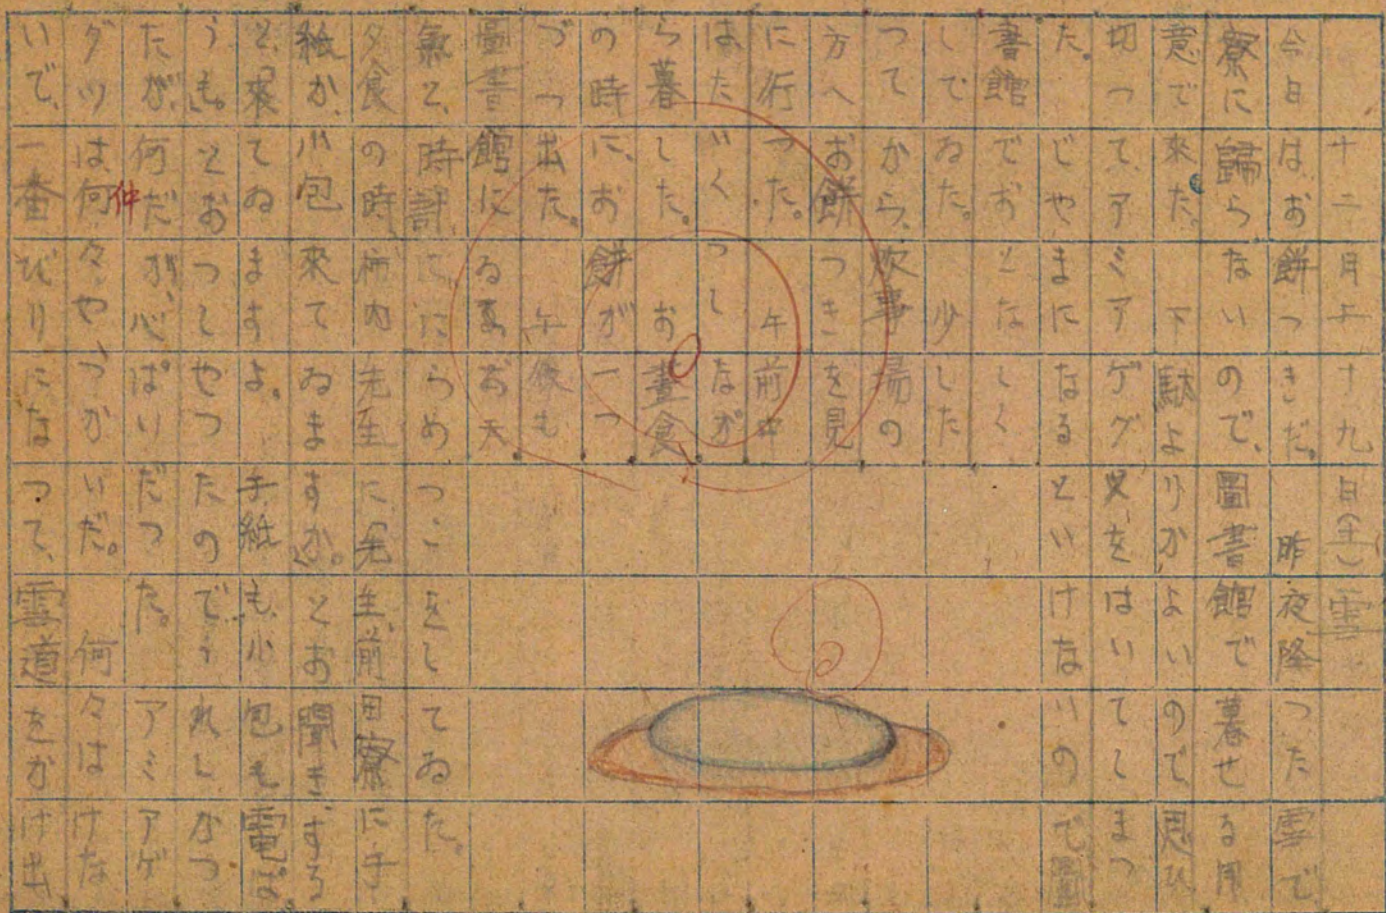 十二月二十九日(金)雪
今日はお餅つきだ。昨夜降つた雪で
寮に歸らないので、圖書館で暮せる用
意で來た。下駄よりがよいので思ひ
切つて、アミアゲグ又をはいてしまつ
た。じやまになるといけないので圖
書館でおとなしく
してゐた。少した
つてから、炊事場の
方へお餅つきを見
に行つた。午前中
はたいくつしなが
ら暮した。お晝食
の時に、お餅が一つ
づつ出た。午後も
圖書館にゐる。お天
氣と、時計に、にらめつこをしてゐた。
夕食の時、栴内先生に「先生、前田寮に手
紙か、小包來てゐますか。」とお聞きする
と、「來てゐますよ。手紙も、小包も電ぽ
うも。」とおつしやつたのでうれしかつ
たが、何だが、心ぱいだつた。アミアゲ
グツは何仲々やつかいだ。何々はけな
いで、一番びりになつて、雪道をかけ出